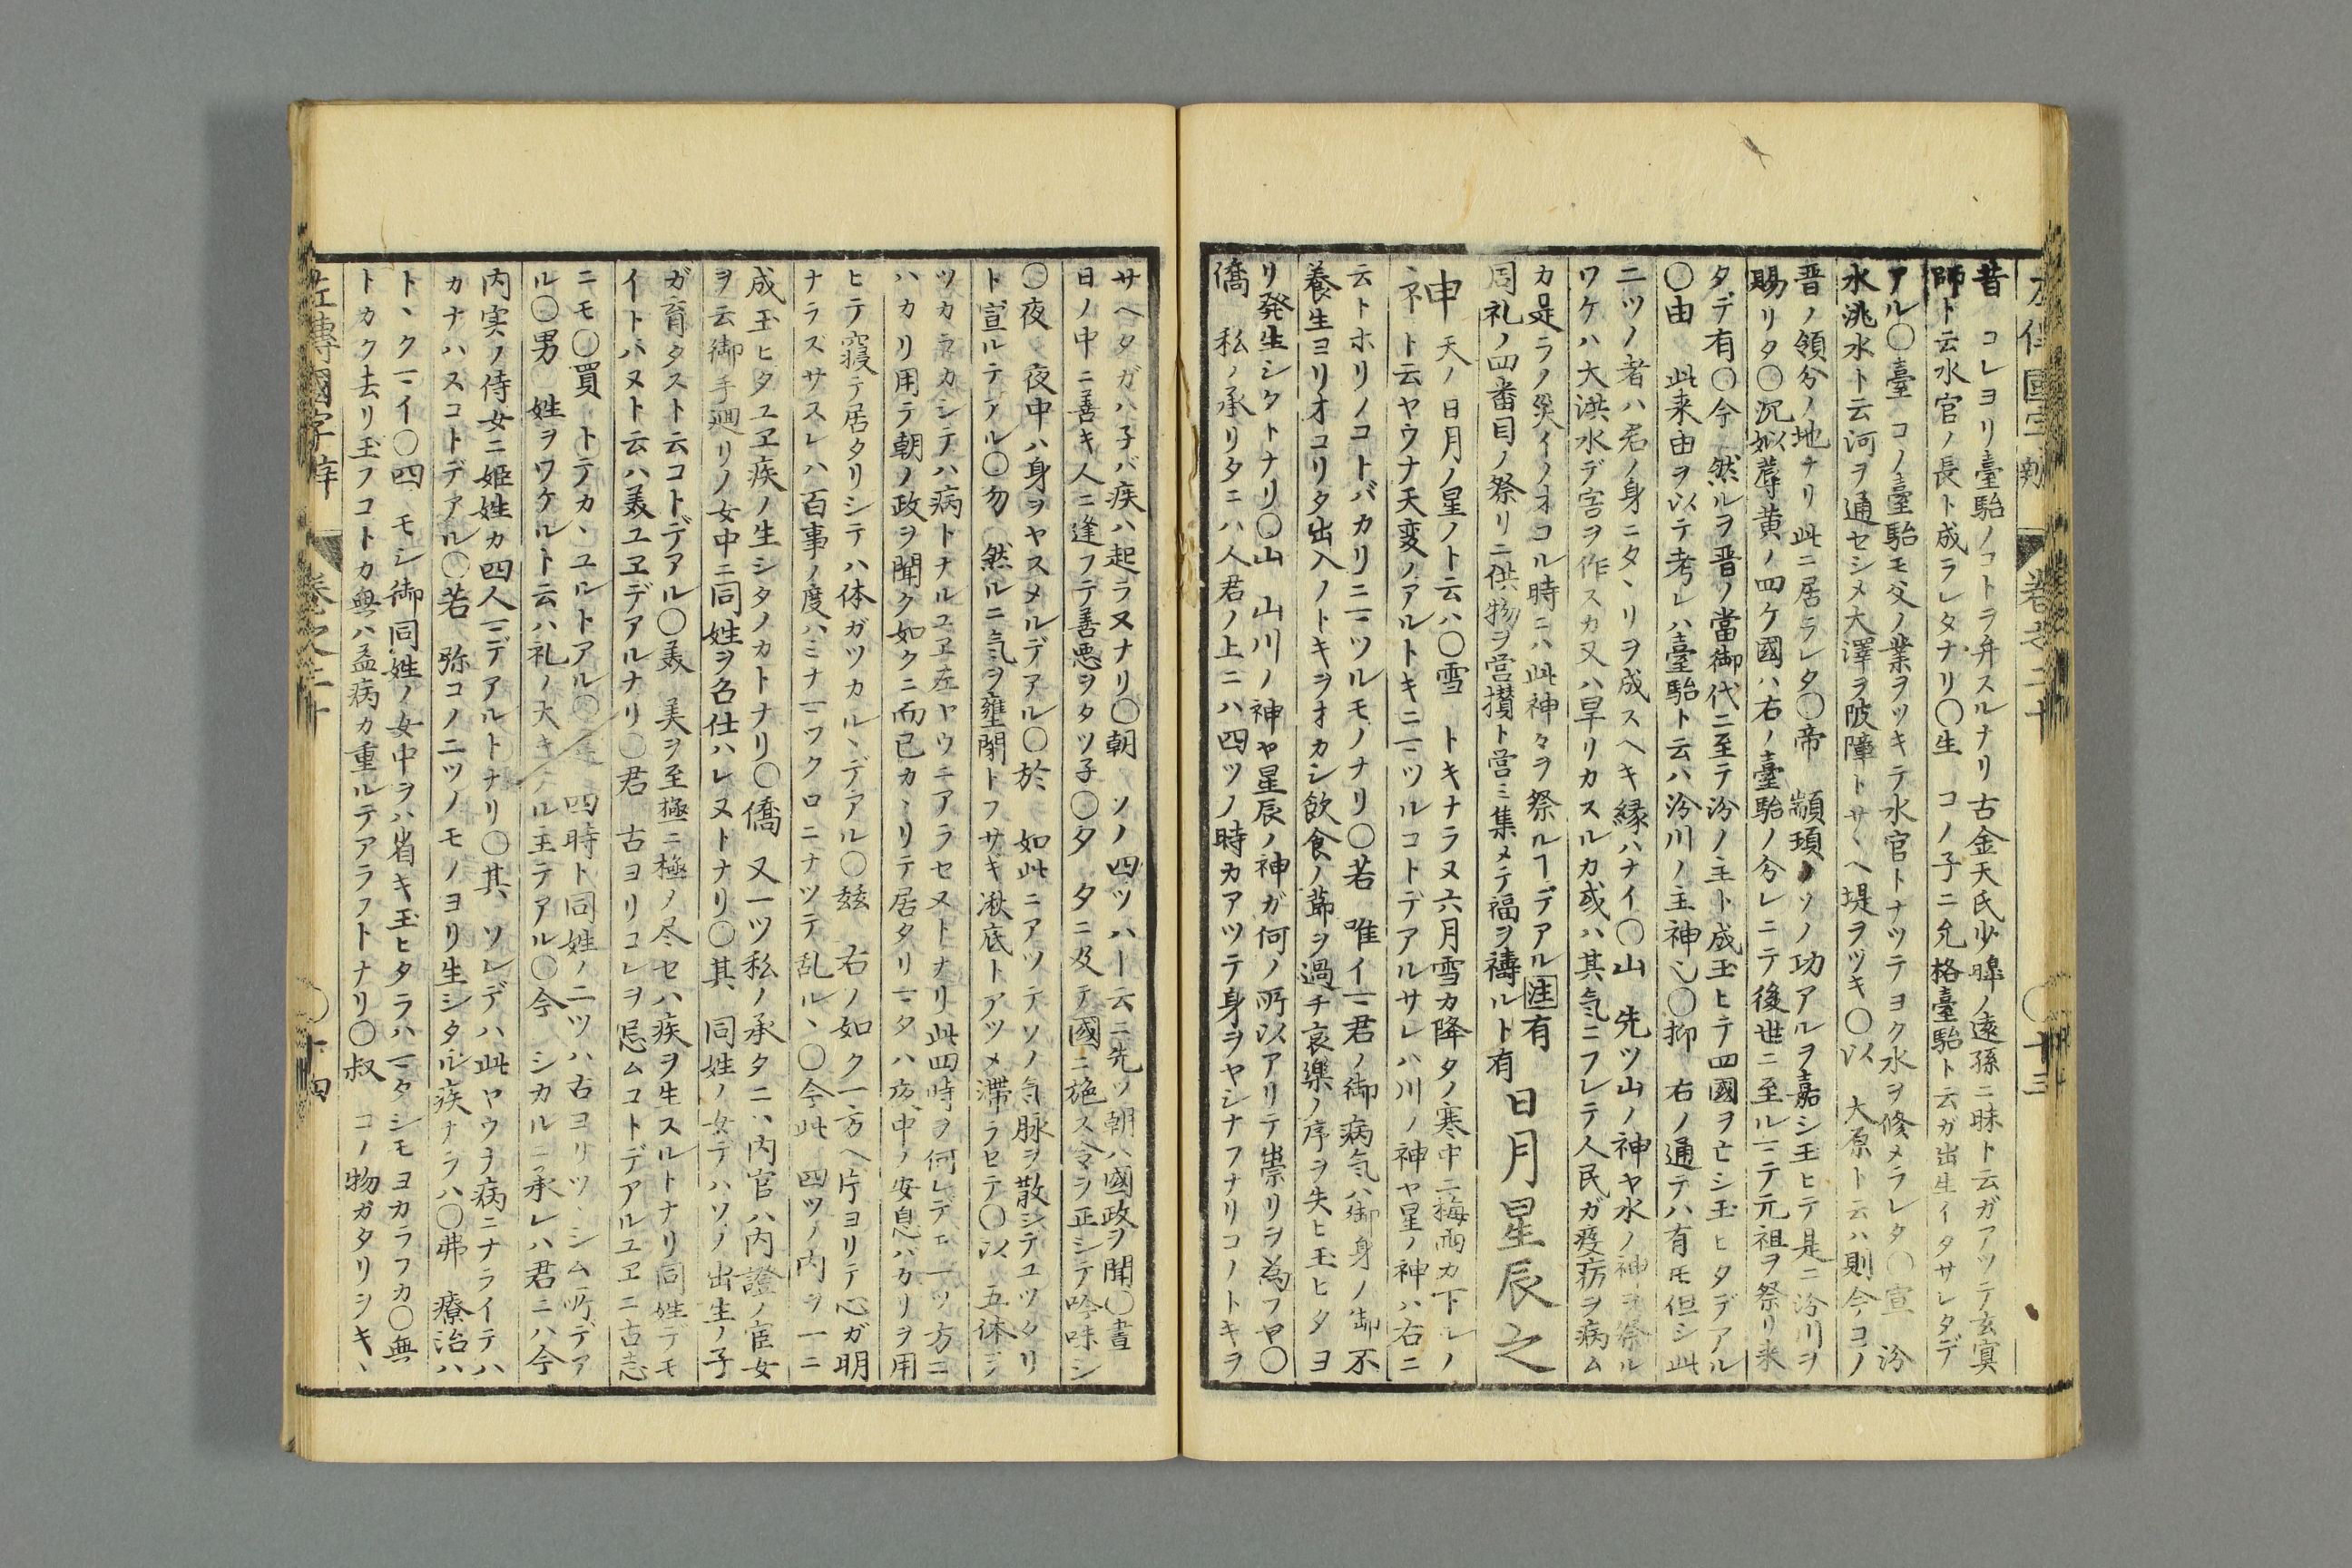 昔　コレヨリ臺駘ノコトヲ弁スルナリ古金天氏少皥ノ遠孫ニ昧ト云ガアツテ玄冥
師ト云水官ノ長ト成ラレタナリ〇生　コノ子ニ允格臺駘ト云ガ出生イタサレタデ
アル〇臺　コノ臺駘モ父ノ業ヲツキテ水官トナツテヨク水ヲ修メラレタ〇宣　汾
水洮水ト云河ヲ通セシメ大澤ヲ陂障トサヽヘ堤ヲヅキ〇以　大原ト云ハ則今コノ
晋ノ領分ノ地ナリ此ニ居ラレタ〇帝　顓頊ノソノ功アルヲ嘉シ玉ヒテ是ニ汾川ヲ
賜リタ〇沉姒蓐黄ノ四ケ國ハ右ノ臺駘ノ分レニテ後世ニ至ルマテ元祖ヲ祭リ来
タデ有〇今　然ルヲ晋ノ當御代ニ至テ汾ノ主ト成玉ヒテ四國ヲ亡シ玉ヒタデアル
〇由　此来由ヲ以テ考レハ臺駘ト云ハ汾川ノ主神也〇抑　右ノ通テハ有モ但シ此
二ツノ者ハ君ノ身ニタヽリヲ成スヘキ縁ハナイ〇山　先ツ山ノ神ヤ水ノ神ヲ祭ル
ワケハ大洪水デ害ヲ作スカ又ハ旱リカスルカ或ハ其気ニフレテ人民ガ疫疠ヲ病ム
カ是ラノ災イノオコル時ニハ此神々ヲ祭ルヿデアル注有
周礼ノ四番目ノ祭リニ供物ヲ営攅ト営ミ集メテ福ヲ禱ルト有
日月星辰之
神　天ノ日月ノ星ノト云ハ〇雪　トキナラヌ六月雪カ降タノ寒中ニ梅雨カ下レノ
ネト云ヤウナ天変ノアルトキニマツルコトデアルサレハ川ノ神ヤ星ノ神ハ右ニ
云トホリノコトバカリニマツルモノナリ〇若　唯イマ君ノ御病気ハ御身ノ御不
養生ヨリオコリタ出入ノトキヲオカシ飲食ノ節ヲ過チ哀樂ノ序ヲ失ヒ玉ヒタヨ
リ発生シタトナリ〇山　山川ノ神ヤ星辰ノ神ガ何ノ所以アリテ祟リヲ為フヤ〇
僑　私ノ承リタニハ人君ノ上ニハ四ツノ時カアツテ身ヲヤシナフナリコノトキヲ
サヘタガハ子バ疾ハ起ラヌナリ〇朝　ソノ四ツハト云ニ先ツ朝ハ國政ヲ聞〇晝
日ノ中ニ善キ人ニ逢フテ善悪ヲタツ子〇夕　夕ニ及テ國ニ施ス令ヲ正シテ吟味シ
〇夜　夜中ハ身ヲヤスメルデアル〇於　如此ニアツテソノ気脉ヲ散シテユツクリ
ト宣ルテアル〇勿　然ルニ気ヲ壅閉トフサキ湫底トアツメ滯ラセテ〇以　五体ヲ
ツカラカシテハ病トナルユヱ左ヤウニアラセヌトナリ此四時ヲ何レデモ一ツ方ニ
ハカリ用ラ朝ノ政ヲ聞ク如クニ而已カヽリテ居タリマタハ夜中ノ安息ハカリヲ用
ヒテ寝テ居タリシテハ体ガツカルヽデアル〇玆　右ノ如ク一方ヘ片ヨリテ心ガ明
ナラスサスレハ百事ノ度ハミナマツクロニナツテ乱ルヽ〇今此　四ツノ内ヲ一ニ
成玉ヒタユヱ疾ノ生シタノカトナリ〇僑　又一ツ私ノ承タニハ内官ハ内證ノ宦女
ヲ云御手廻リノ女中ニ同姓ヲ召仕ハレヌトナリ〇其　同姓ノ女テハソノ出生ノ子
ガ育タスト云コトデアル〇美　美ヲ至極ニ極ノ尽セハ疾ヲ生スルトナリ同姓デモ
イトハヌト云ハ美ユヱデアルナリ〇君　古ヨリコレヲ忌ムコトデアルユヱニ古志
ニモ〇買　トテカヽユルトアル〇　四時ト同姓ノ二ツハ古ヨリツヽシム所デア
ル〇男　姓ヲワケルト云ハ礼ノ大キナル主テアル〇今　シカルニ承レハ君ニハ今
内実ノ侍女ニ姫姓カ四人マデアルトナリ〇其　ソレデハ此ヤウナ病ニナライテハ
カナハスコトデアル〇若　弥コノ二ツノモノヨリ生シタル疾ナラハ〇弗　療治ハ
トヽクマイ〇四　モシ御同姓ノ女中ヲハ省キ玉ヒタラハマタシモヨカラフカ〇無
トカク去リ玉フコトカ無ハ孟病カ重ルテアラフトナリ〇叔　コノ物ガタリヲキヽ
左傳國字辯　巻之二十　〇十四